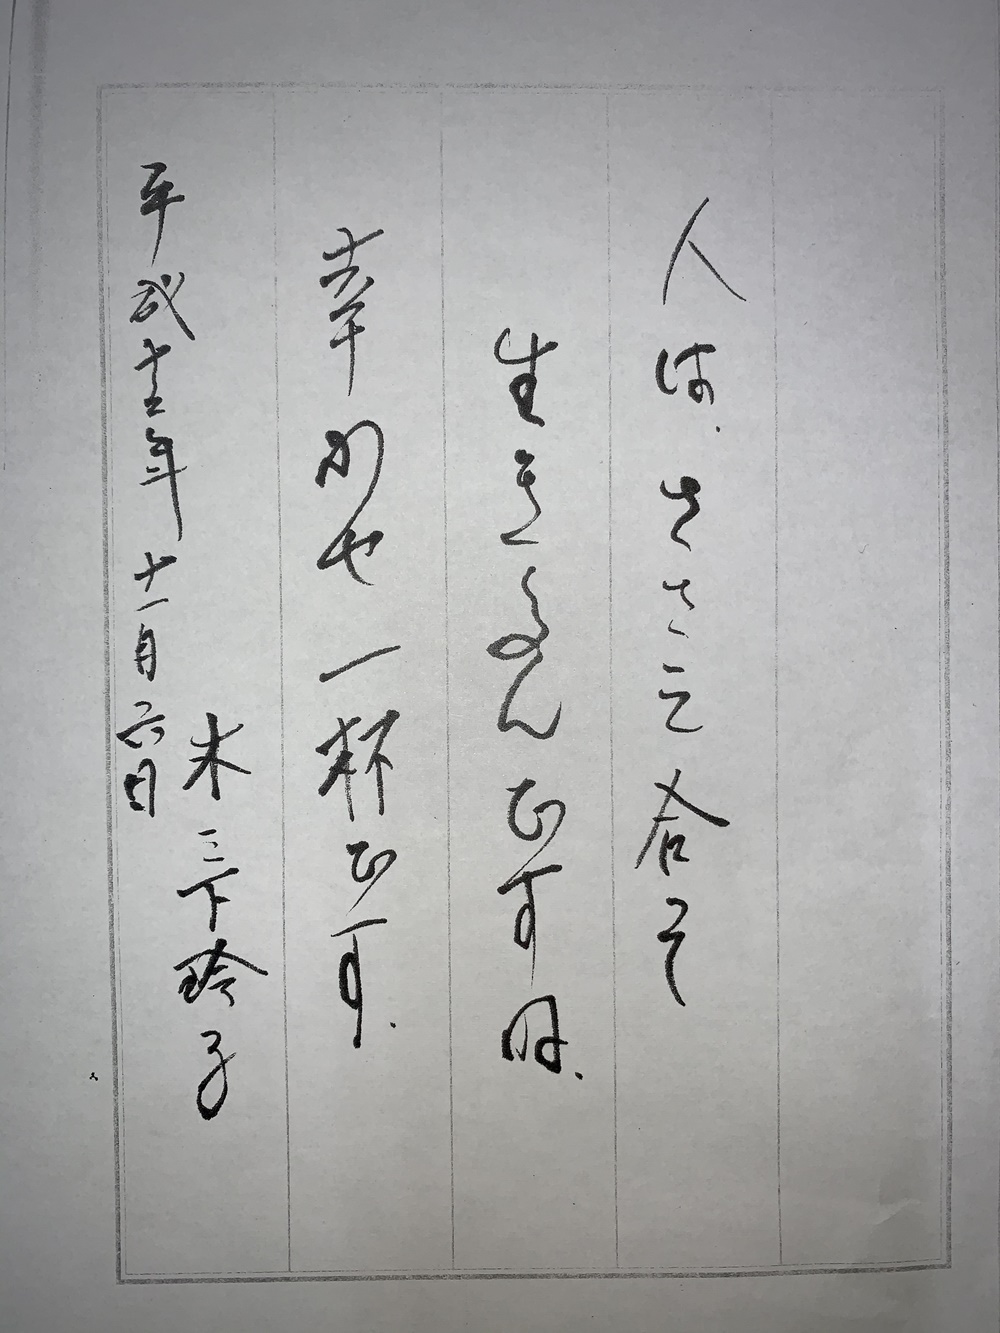 人は、ささえ合って
生きるんですね。
幸せ一杯です。
木三下玲子
平成十二年十一月六日